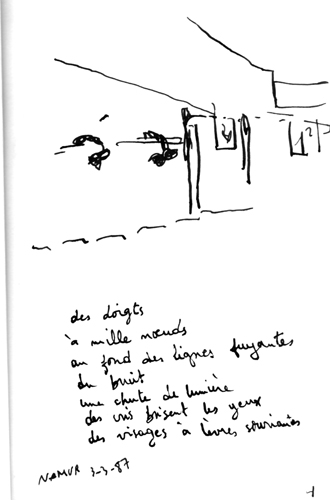 des doigts
à mille nœuds
au fond des lignes fuyantes
du bruit
une chute de lumière
des cris brisent les yeux
des visages à lèvres souriantes
NAMUR 3-3-87